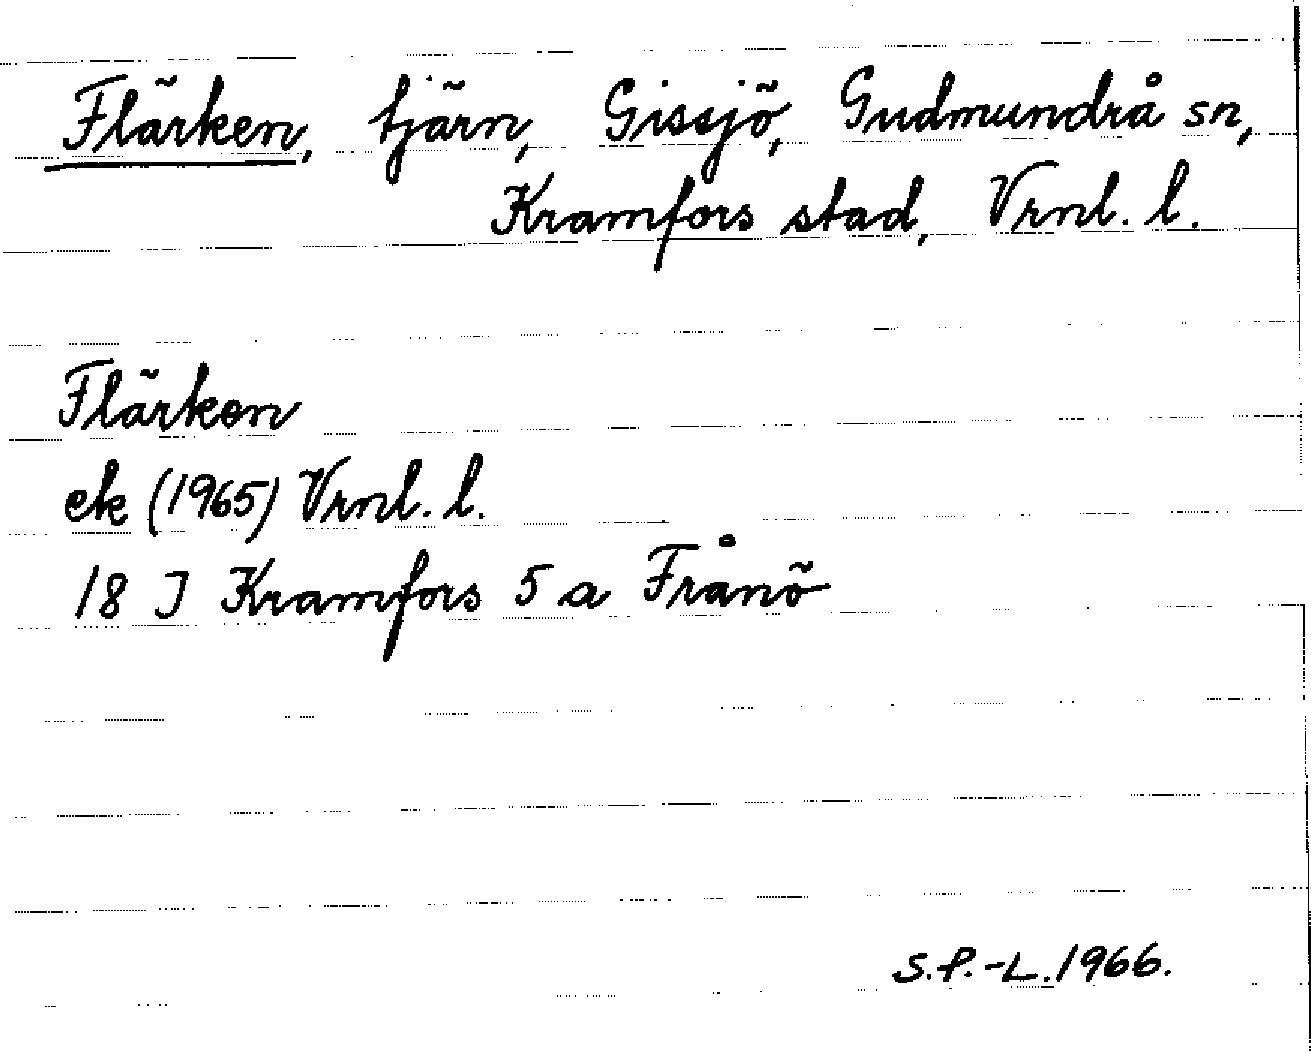 Flärken, tjärn, Gissjö, Gudmundrå sn,
Kramfors stad, Vrnl. l.
Flärken
ek (1965) Vrnl. l.
18 J Kramfors 5 a Frånö
S.P.-L. 1966.